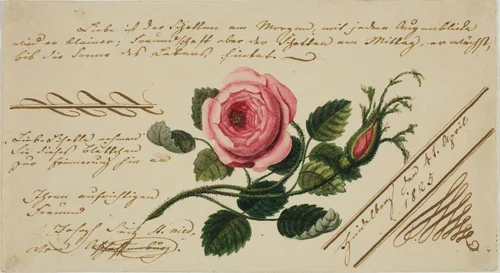 Liebe ist der Schatten am Morgen, mit jedem Augenblicke
wird er kleiner; Freundschaft aber der Schatten am Mittag, er wächst,
bis die Sonne des Lebens sinket.
nehmen
Sie dieses Blättchen
zur Erinnerung hin an
Ihren aufrichtigen
Freund
Joseph
Heidelberg den 11. April
1825